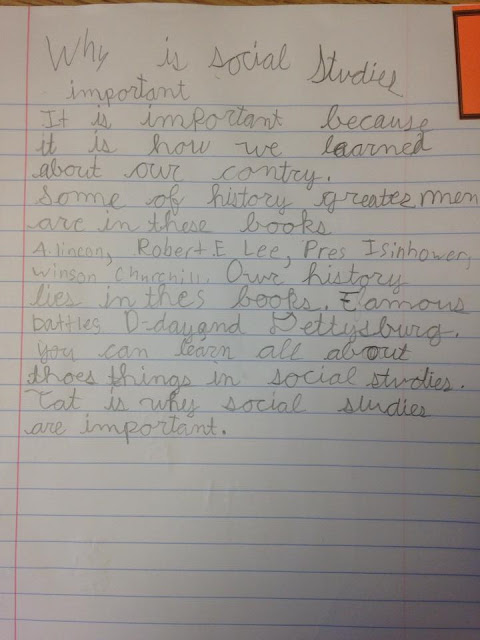 Why is social studies
important
It is important because
it is how we learned
about our contry.
Some of history greates men
are in these books
A. lincon, Robert E Lee, Pres Isinhower,
winson Churchill. Owr history
lies in thes books. Famous
battles D-day and Gettysburg.
you can learn all about
thoes things in social studies.
Tat is why social studies
are important.